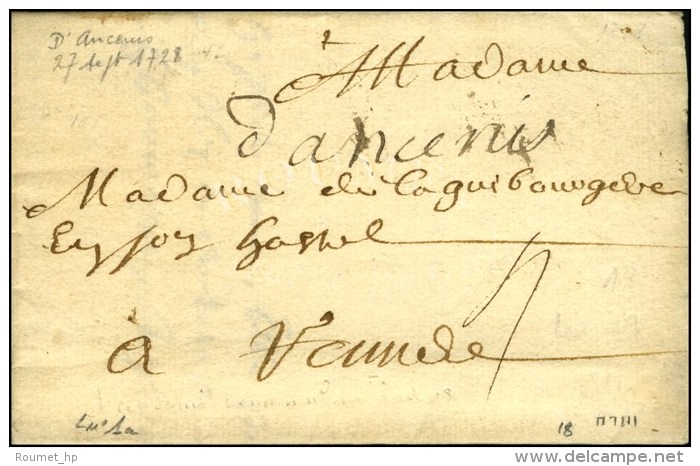 D'Ancenis
27 Sept 1728
A Madame
dancenis
Madame de la guibourgere
En son hostel
a
18
Roumet_hp
www.delcampe.net